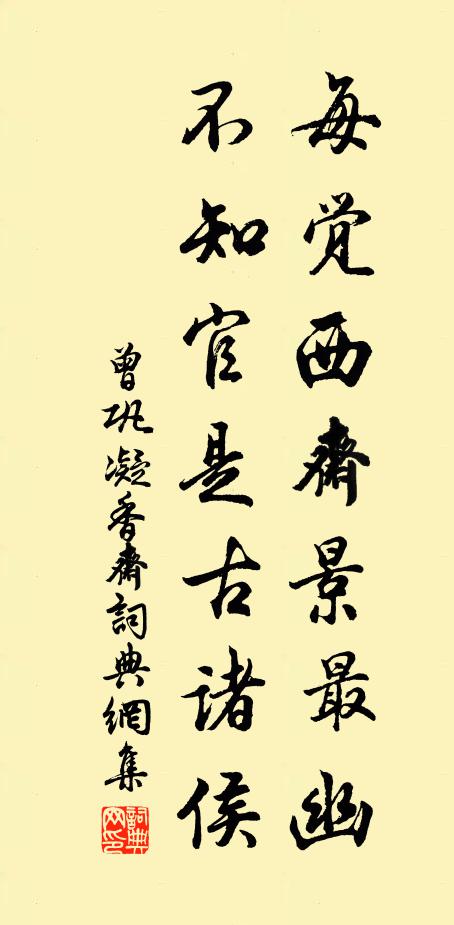 每觉西斋景最幽
不知官是古诸侯
曾巩凝香斋詞典網集
詞典
网印